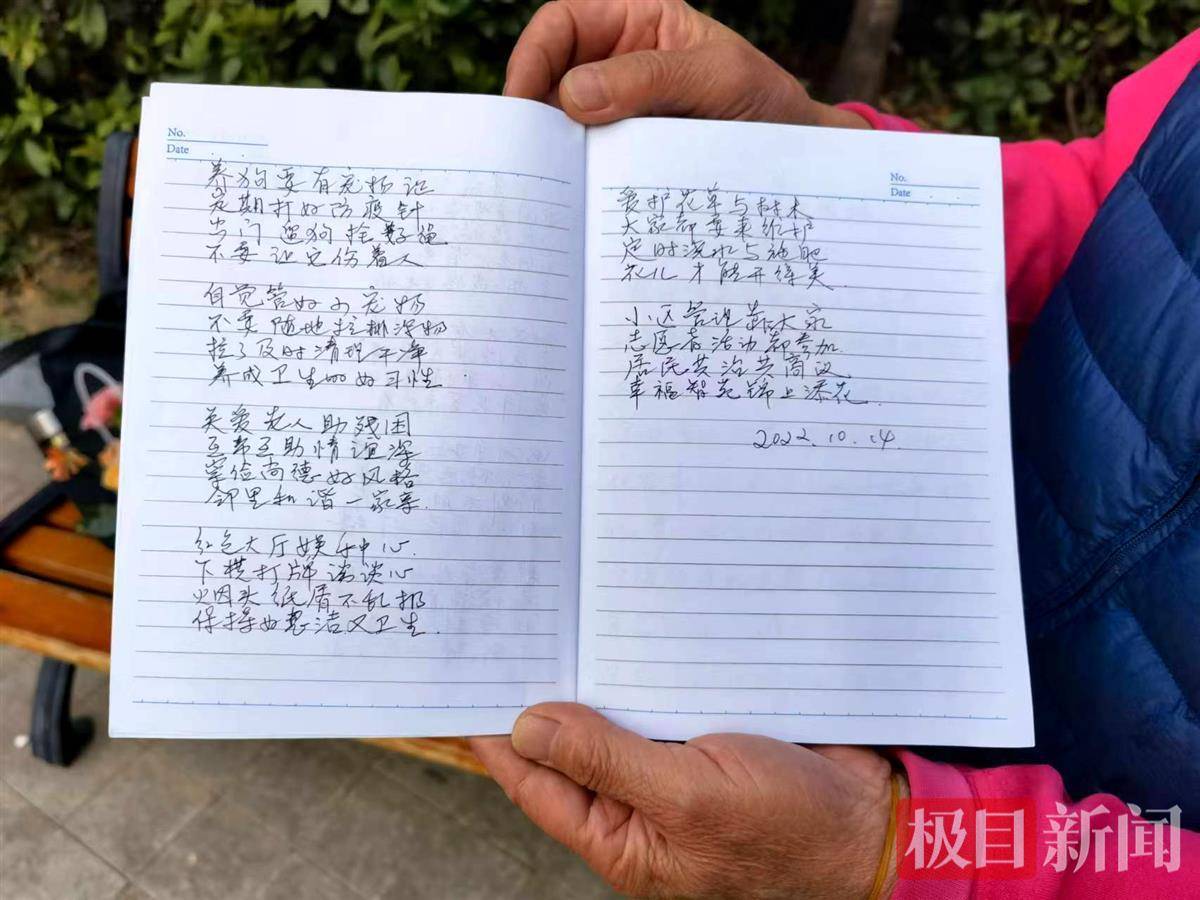 No.
Date
养狗要有宠物证
定期打好防疫针
出门遛狗拴好绳
不要让它伤着人
自觉管好小宠物
不要随地拉排泄物
拉了及时清理干净
养成卫生的好习性
关爱老人助残困
互帮互助情谊深
掌俭尚德好风格
邻里和谐一家亲
红色大厅娱乐中心
下棋打牌谈谈心
烟头纸屑不乱扔
保持整洁又卫生
No.
Date
爱护花草与树木
大家都要来维护
定时浇水与施肥
花儿才能开得美
小区管理靠大家
志愿者活动都参加
居民共治共商议
幸福智苑锦上添花
2022.10.14.
极目新闻